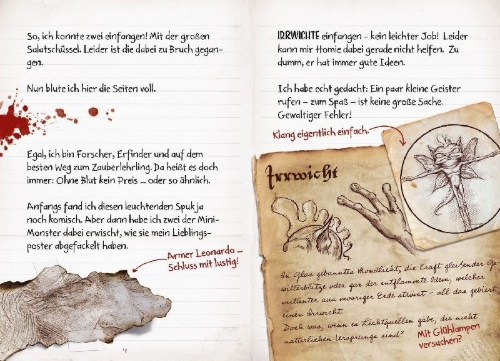 So, ich konnte zwei einfangen! Mit der großen
Salatschüssel. Leider ist die dabei zu Bruch gegan-
gen.
Nun blute ich hier die Seiten voll.
Egal, ich bin Forscher, Erfinder und auf dem
besten Weg zum Zauberlehrling. Da heißt es doch
immer: Ohne Blut kein Preis ... oder so ähnlich.
Anfangs fand ich diesen leuchtenden Spuk ja
noch komisch. Aber dann habe ich zwei der Mini-
Monster dabei erwischt, wie sie mein Lieblings-
poster abgefackelt haben.
Armer Leonardo –
Schluss mit lustig!
4
IRRWICHTE einfangen – kein leichter Job! Leider
kann mir Homie dabei gerade nicht helfen. Zu
dumm, er hat immer gute Ideen.
Ich habe echt gedacht: Ein paar kleine Geister
rufen – zum Spaß – ist keine große Sache.
Gewaltiger Fehler!
Klang eigentlich einfach.
Irrwicht
In Glas gebanntes Mondlicht, die Kraft gleißender Ge-
witterblitze oder gar der entflammte Ideen, welcher
mitunter aus neveriger Erde atmet – all das gebiert
einen Irrwicht.
Doch was, wenn es Lichtquellen gäbe, die nicht
natürlichen Ursprungs sind?
Mit Glühlampen
versuchen?